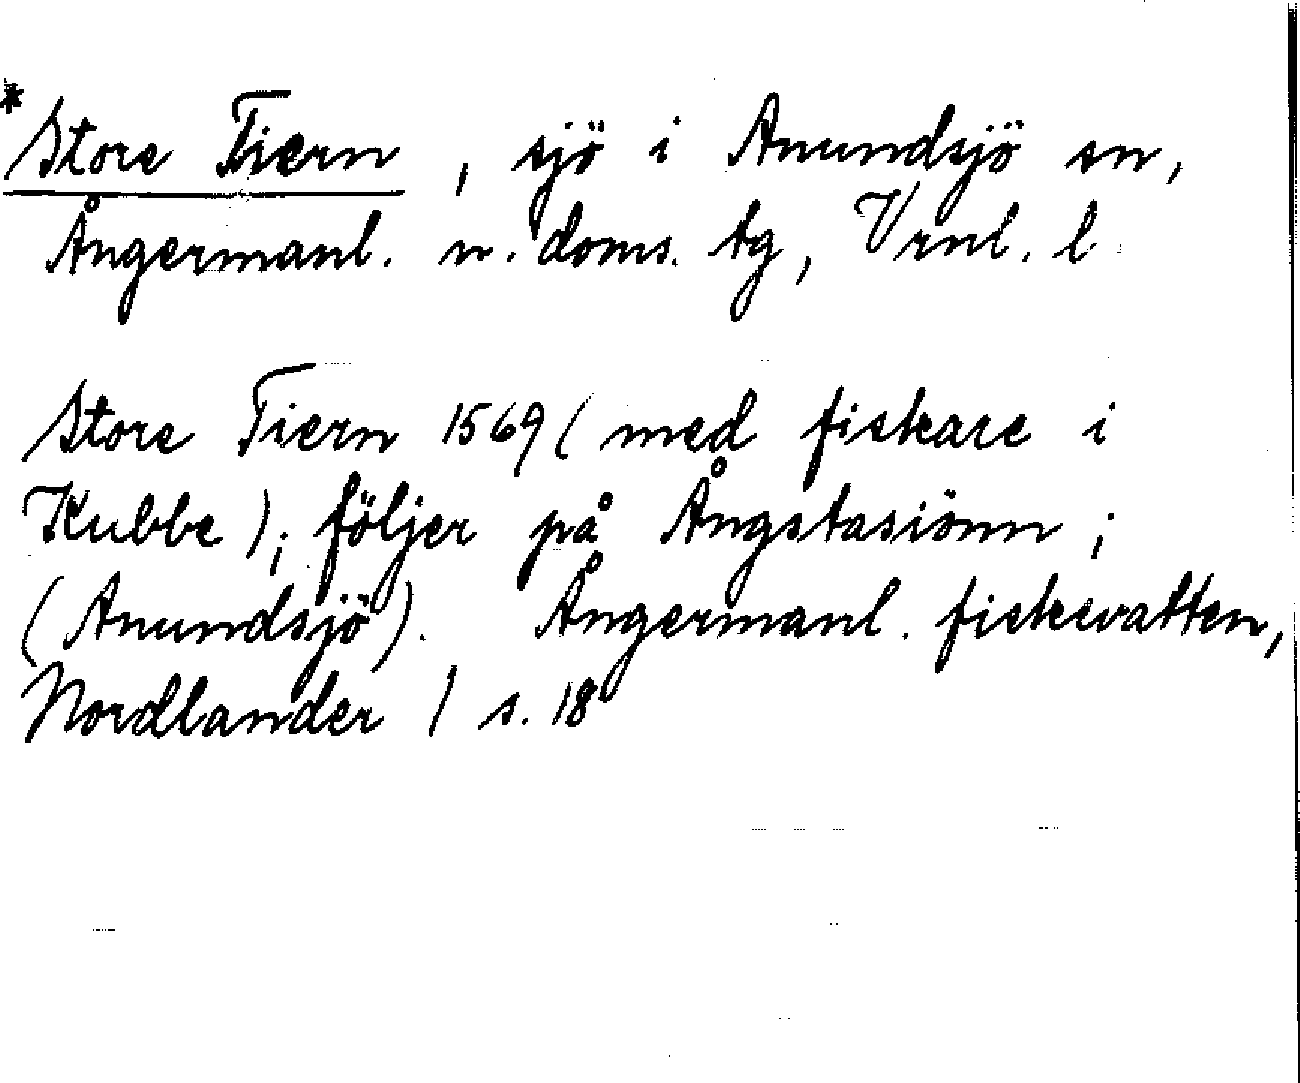 *Store Tiern, sjö i Anundsjö sn,
Ångermanl. n. doms. tg, Vrnl. l
Store Tiern 1569 (med fiskare i
Kubbe); följer på Ångstasiönn;
(Anundsjö). Ångermanl. fiskevatten,
Nordlander / s. 18